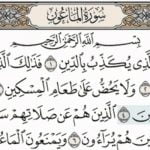 سُورَةُ الْمَاعُونِ
بِسْمِ اللَّهِ الرَّحْمَٰنِ الرَّحِيمِ
لَّذِى يُكَذِّبُ بِالدِّينِ ١ فَذَٰلِكَ
٢ وَلَا يَحُضُّ عَلَىٰ طَعَامِ الْمِسْكِينِ
٤ الَّذِينَ هُمْ عَن صَلَاتِهِمْ سَ
ينَ هُمْ يُرَاءُونَ ٦ وَيَمْنَعُونَ الْمَا